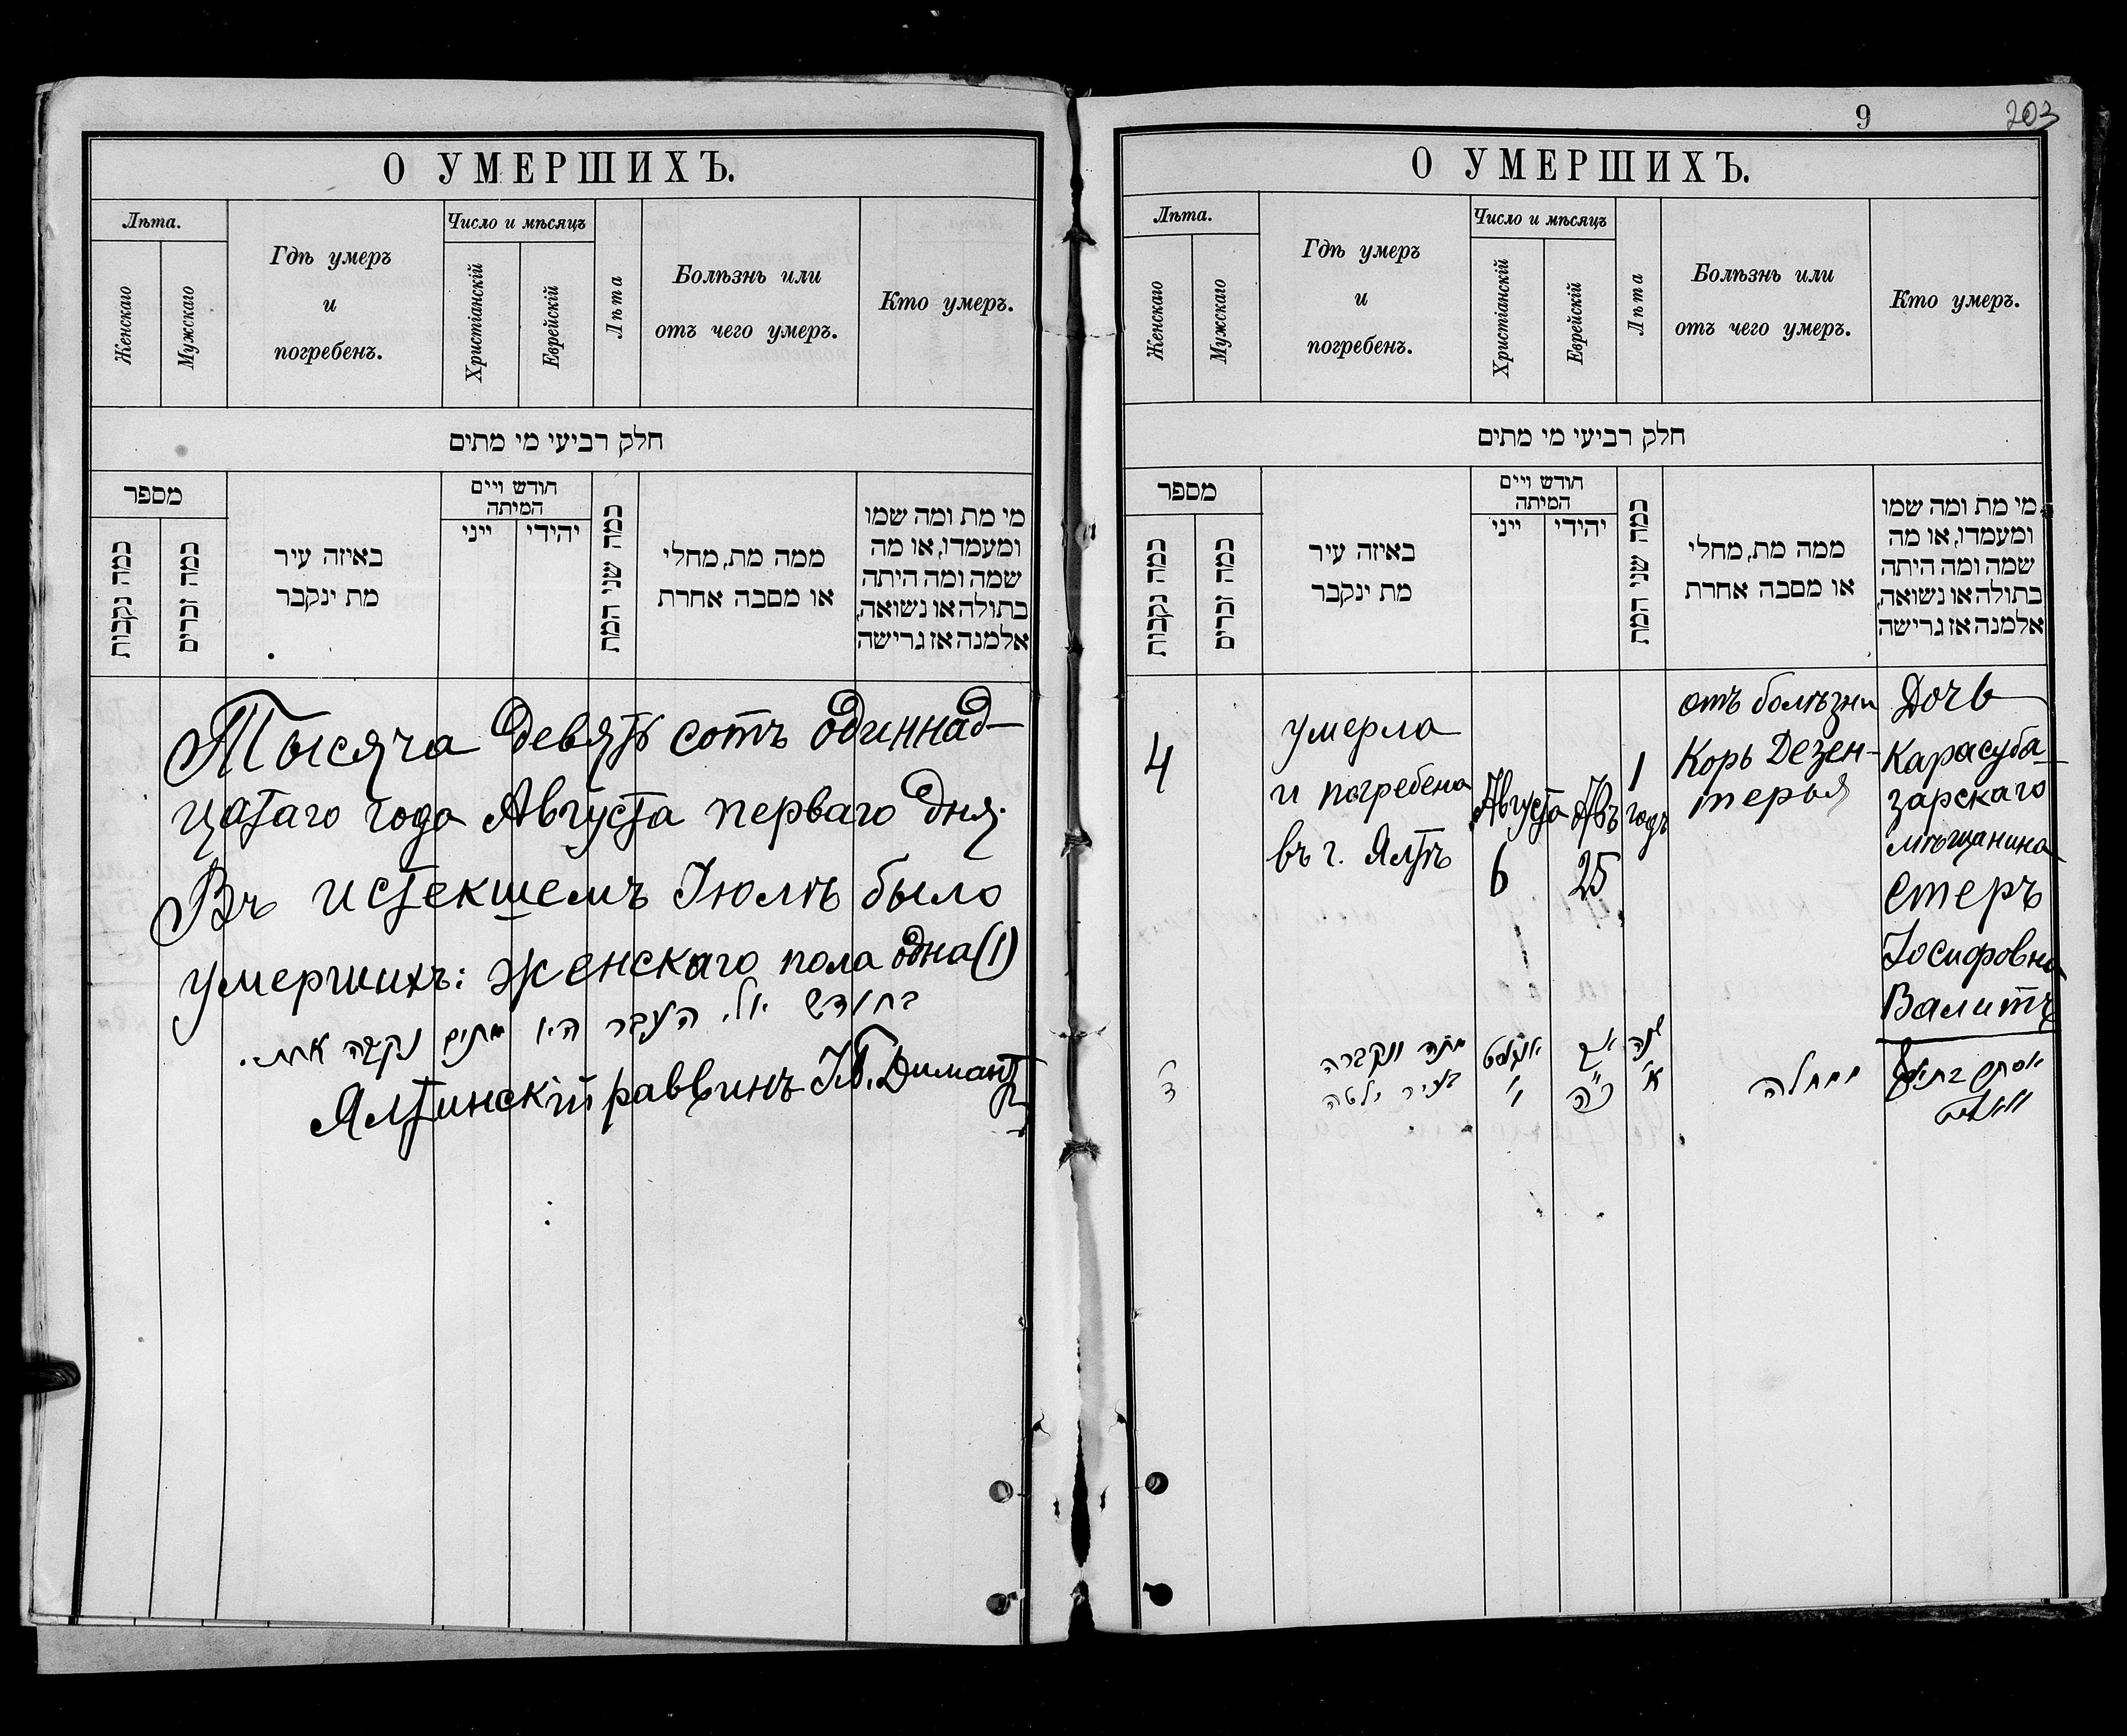 О УМЕРШИХЪ.
Лѣта.
Женскаго
Мужскаго
Гдѣ умеръ
и
погребенъ.
Число и мѣсяцъ
Христіанскій
Еврейскій
Лѣта
Болѣзнь или
отъ чего умеръ.
Кто умеръ.
חלק רביעי מי מתים
מספר
כמה נקבות
כמה זכרים
באיזה עיר
מת ינקבר
חודש ויים
המיתה
ייני
יהידי
כמה שני המת
ממה מת, מחלי
או מסבה אחרת
מי מת ומה שמו
ומעמדו, או מה
שמה ומה היתה
בתולה או נשואה,
אלמנה אז גרישה
Тысяча девять сотъ одиннад-
цатаго года Августа перваго дня.
Въ истекшемъ Іюлѣ было
умершихъ: женскаго пола одна (1)
בחודש יולי העבר היו מתים נקבה אחת.
Ялтинскій раввинъ І.Б. Димантъ
9
203
О УМЕРШИХЪ.
Лѣта.
Женскаго
Мужскаго
Гдѣ умеръ
и
погребенъ.
Число и мѣсяцъ
Христіанскій
Еврейскій
Лѣта
Болѣзнь или
отъ чего умеръ.
Кто умеръ.
חלק רביעי מי מתים
מספר
כמה נקבות
כמה זכרים
באיזה עיר
מת ינקבר
חודש ויים
המיתה
ייני
יהידי
כמה שני המת
ממה מת, מחלי
או מסבה אחרת
מי מת ומה שמו
ומעמדו, או מה
שמה ומה היתה
בתולה או נשואה,
אלמנה אז גרישה
4
умерла
и погребена
въ г. Ялтѣ
Августа
6
Авъ
25
1
годъ
отъ болѣзни
Корь Дезен-
терья
Дочь
Карасуба-
зарскаго
мѣщанина
Естеръ
Іосифовна
Валитъ
ד
מתה ונקברה
בעיר ילטה
אוגוסט
ו׳
אב
כ״ה
שנה
א׳
ממחלה
אסתר בת
וואליט